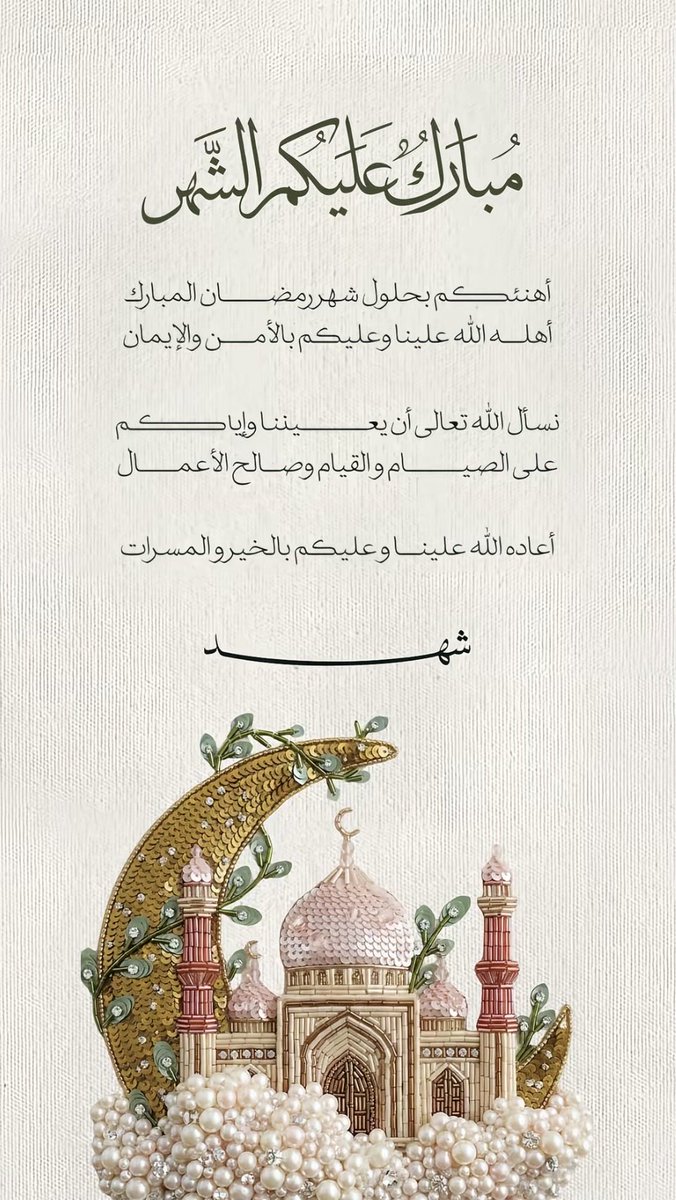 مُبَارَكٌ عَلَيْكُم الشَّهر
أهنئكم بحلول شهر رمضان المبارك
أهله الله علينا وعليكم بالأمن والإيمان
نسأل الله تعالى أن يعيننا وإياكم
على الصيام والقيام وصالح الأعمال
أعاده الله علينا وعليكم بالخير والمسرات
شهد